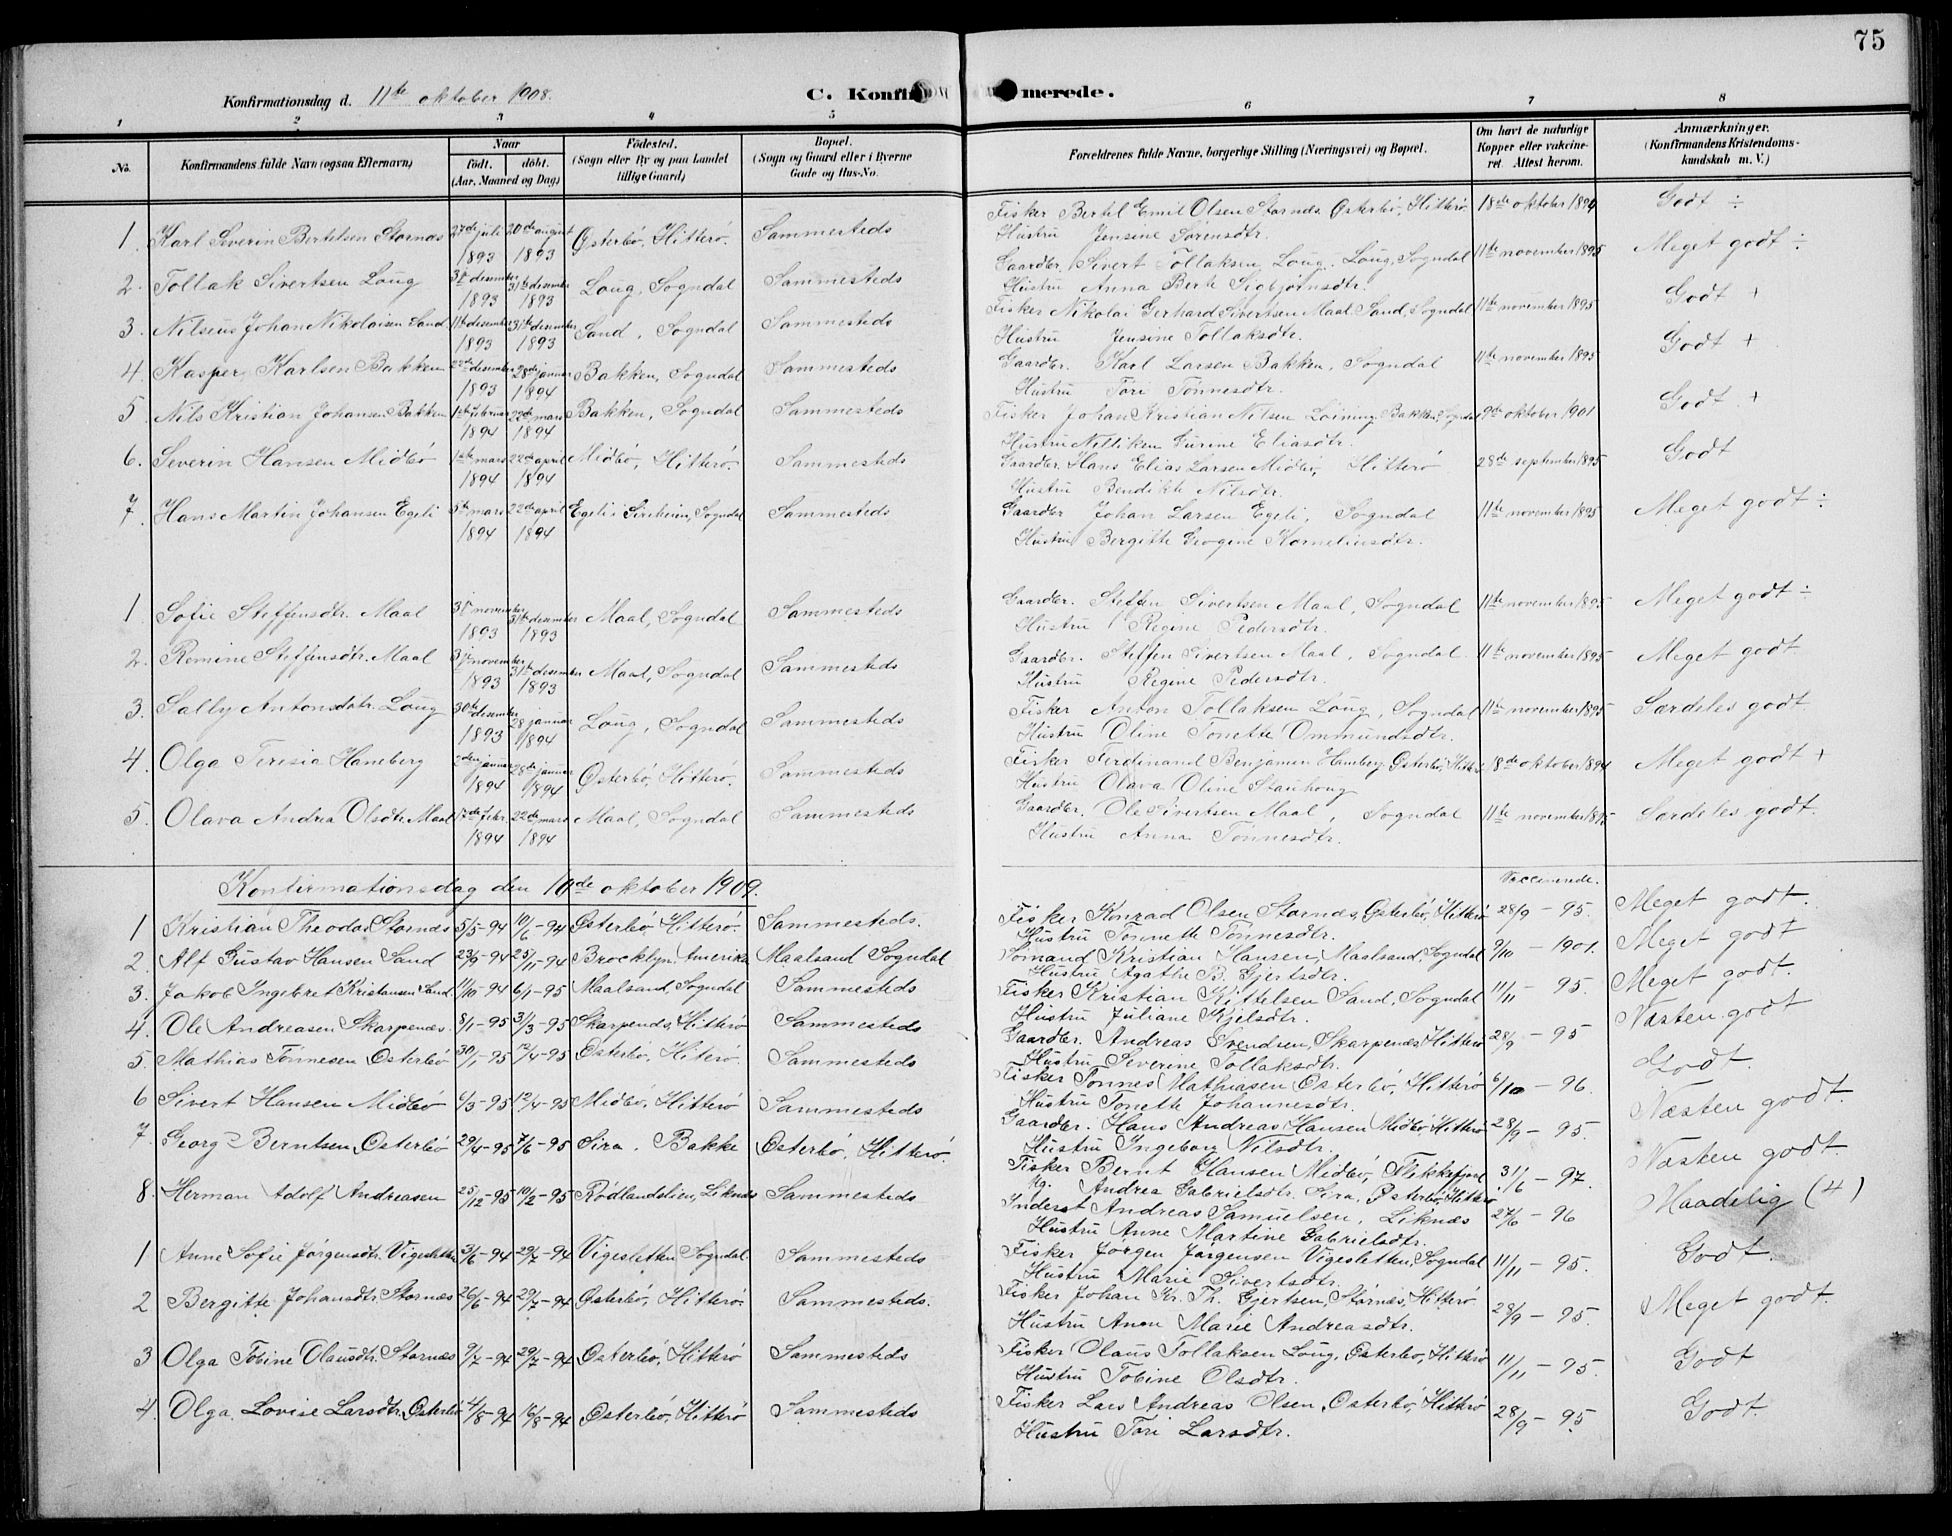 75
Konfirmationsdag d. 11te oktober 1908.
C. Konfirmerede.
1 2 3 4 5 6 7 8
No. Konfirmandens fulde Navn (ogsaa Efternavn) Naar født. døbt. (Aar, Maaned og Dag) Fødested. (Sogn eller By og paa Landet tillige Gaard) Bopæl. (Sogn og Gaard eller i Byerne Gade og Hus-No. Forældrenes fulde Navne, borgerlige Stilling (Næringsvei) og Bopæl. Om havt de naturlige Kopper eller vakcineret. Attest herom. Anmærkninger. (Konfirmandens Kristendomskundskab m. V.)
1. Karl Severin Bertelsen Stornæs 27de juli 1893 20de august 1893 Østerbø, Hitterø. Sammesteds Fisker Bertel Emil Olsen Stornæs, Østerbø, Hitterø 18de oktober 1894 Godt ÷
Hustru Jensine Sørensdtr.
2. Tollak Sivertsen Loug desember 1893 31te desember 1893 Loug, Sogndal Sammesteds Gaardbr. Sivert Tollaksen Loug, Loug, Sogndal 11te november 1895 Meget godt ÷
Hustru Anna Berte Sigbjørnsdtr.
3. Nilseus Johan Nikolaisen Sand 11te desember 1893 31te desember 1893 Sand, Sogndal Sammesteds Fisker Nikolai Gerhard Sivertsen Maal. Sand, Sogndal 11te november 1895 Godt +
Hustru Jensine Tollaksdtr.
4. Kasper Karlsen Bakken 22de desember 1893 28de januar 1894 Bakken, Sogndal Sammesteds Gaardbr. Karl Larsen Bakken, Sogndal 11te november 1895 Godt +
Hustru Tori Tønnesdtr.
5. Nils Kristian Johansen Bakken 1ste februar 1894 22de mars 1894 Bakken, Sogndal Sammesteds Fisker Johan Kristian Nilsen Loining, Bakken, Sogndal 9de oktober 1901 Godt +
Hustru Nilliken Gurine Eliasdtr.
6. Severin Hansen Midbø 1ste mars 1894 22de april 1894 Midbø, Hitterø. Sammesteds Gaardbr. Hans Elias Larsen Midbø, Hitterø 28de september 1895 Godt
Hustru Bendikte Nilsdtr.
7. Hans Martin Johansen Egeli 5te mars 1894 22de april 1894 Egeli i Sireheien, Sogndal Sammesteds Gaardbr Johan Larsen Egeli, Sogndal 11te november 1895 Meget godt ÷
Hustru Bergitte Gregine Korneliusdtr.
1. Sofie Steffensdtr. Maal november 1893 31te desember 1893 Maal, Sogndal Sammesteds Gaardbr. Steffen Sivertsen Maal, Sogndal 11te november 1895 Meget godt ÷
Hustru Regine Pedersdtr.
2. Remine Steffensdtr. Maal november 1893 31te desember 1893 Maal, Sogndal Sammesteds Gaardbr. Steffen Sivertsen Maal, Sogndal. 11te november 1895 Meget godt
Hustru Regine Pedersdtr.
3. Sally Antonsdatr. Loug 30te desember 1893 28 januar 1894 Loug, Sogndal Sammesteds Fisker Anton Tollaksen Loug, Sogndal 11te november 1895 Særdeles godt
Hustru Oline Tonette Ommundsdtr.
4. Olga Teresia Haneberg 2den januar 1894 28de januar 1894 Østerbø, Hitterø. Sammesteds Fisker Ferdinand Benjamin Haneberg Østerbø, Hitterø 18de oktober 1894 Meget godt +
Hustru Olava Oline Stanhoug
5. Olava Andrea Olsdtr. Maal 17de febr. 1894 22de mars 1894 Maal, Sogndal Sammesteds Gaardbr. Ole Sivertsen Maal, Sogndal 11te november 1895 Særdeles godt.
Hustru Anna Tønnesdtr.
Konfirmationsdag den 10de oktober 1909. Vaccinerede.
1 Kristian Theodor Stornæs 5/5-94 10/6-94 Østerbø, Hitterø. Sammesteds. Fisker Konrad Olsen Stornæs, Østerbø, Hitterø 28/9-95. Meget godt.
Hustru Tonnette Tønnesdtr.
2. Alf Gustav Hansen Sand 23/9-94 25/11-94 Brocklyn, Amerika Maalsand Sogndal Sømand Kristian Hansen, Maalsand, Sogndal 9/10-1901. Meget godt
Hustru Agathe B. Gjertsdtr.
3. Jakob Ingebret Kristansen Sand 11/10-94 6/1-95 Maalsand, Sogndal Sammesteds Fisker Kristian Kittelsen Sand, Sogndal 11/11-95. Meget godt.
Hustru Juliane Kjelsdtr.
4. Ole Andreasen Skarpenæs 8/1-95 31/3-95 Skarpenæs, Hitterø Sammesteds Gaardbr. Andreas Svendsen, Skarpenæs, Hitterø 28/9-95 Næsten godt
Hustru Severine Tollaksdtr.
5. Mathias Tønnesen Østerbø 30/1-95 12/4-95 Østerbø, Hiterø. Sammesteds Fisker Tønnes Mathiasen Østerbø, Hitterø 6/10-96. Godt.
Hustru Tonette Johannesdtr.
6 Sivert Hansen Midbø 6/3-95 12/4-95 Midbø, Hitterø Sammesteds Gaardbr. Hans Andreas Hansen Midbø Hitterø 28/9-95. Næsten godt.
Hustru Ingeborg Nilsdtr.
7. Georg Berntsen Østerbø 29/4-95 7/6-95 Sira, Bakke Østerbø, Hitterø. Fisker Bernt Hansen Midbø, Flekkefjord 31/6-97. Næsten godt.
Ug. Andrea Gabrielsdtr. Sira, Østerbø, Hitterø
8. Herman Adolf Andreasen 25/12-95 10/2-95 Rødlandslien, Liknæs Sammesteds Inderst Andreas Samuelsen, Liknæs 27/6-96 Maadelig (4)
Hustru Anne Martine Gabrielsdtr.
1 Anne Sofie Jørgensdtr. Vigesletten 3/6-94 29/7-94 Vigesletten Sogndal Sammesteds Fisker Jørgen Jørgensen Vigesletten, Sogndal 11/11-95. Godt
Hustru Marie Sivertsdtr.
2 Bergitte Johansdtr. Stornæs 26/6-94 29/7-94 Østerbø, Hitterø. Sammesteds. Fisker Johan Kr. Th. Gjertsen, Stornæs, Hitterø 28/9-95. Meget godt.
Hustru Anna Marie Andreasdtr.
3 Olga Tobine Olausdtr. Stornæs 9/7-94 29/7-94 Østerbø, Hitterø Sammesteds Fisker Olaus Tollaksen Loug, Østerbø, Hitterø 11/11-95. Godt
Hustru Tobine Olsdtr.
4. Olga Lovise Larsdtr. Østerbø 4/8-94 16/8-94 Østerbø, Hitterø Sammesteds Fisker Lars Andreas Olsen, Østerbø, Hitterø 28/9-95 Godt.
Hustru Tori Larsdtr.